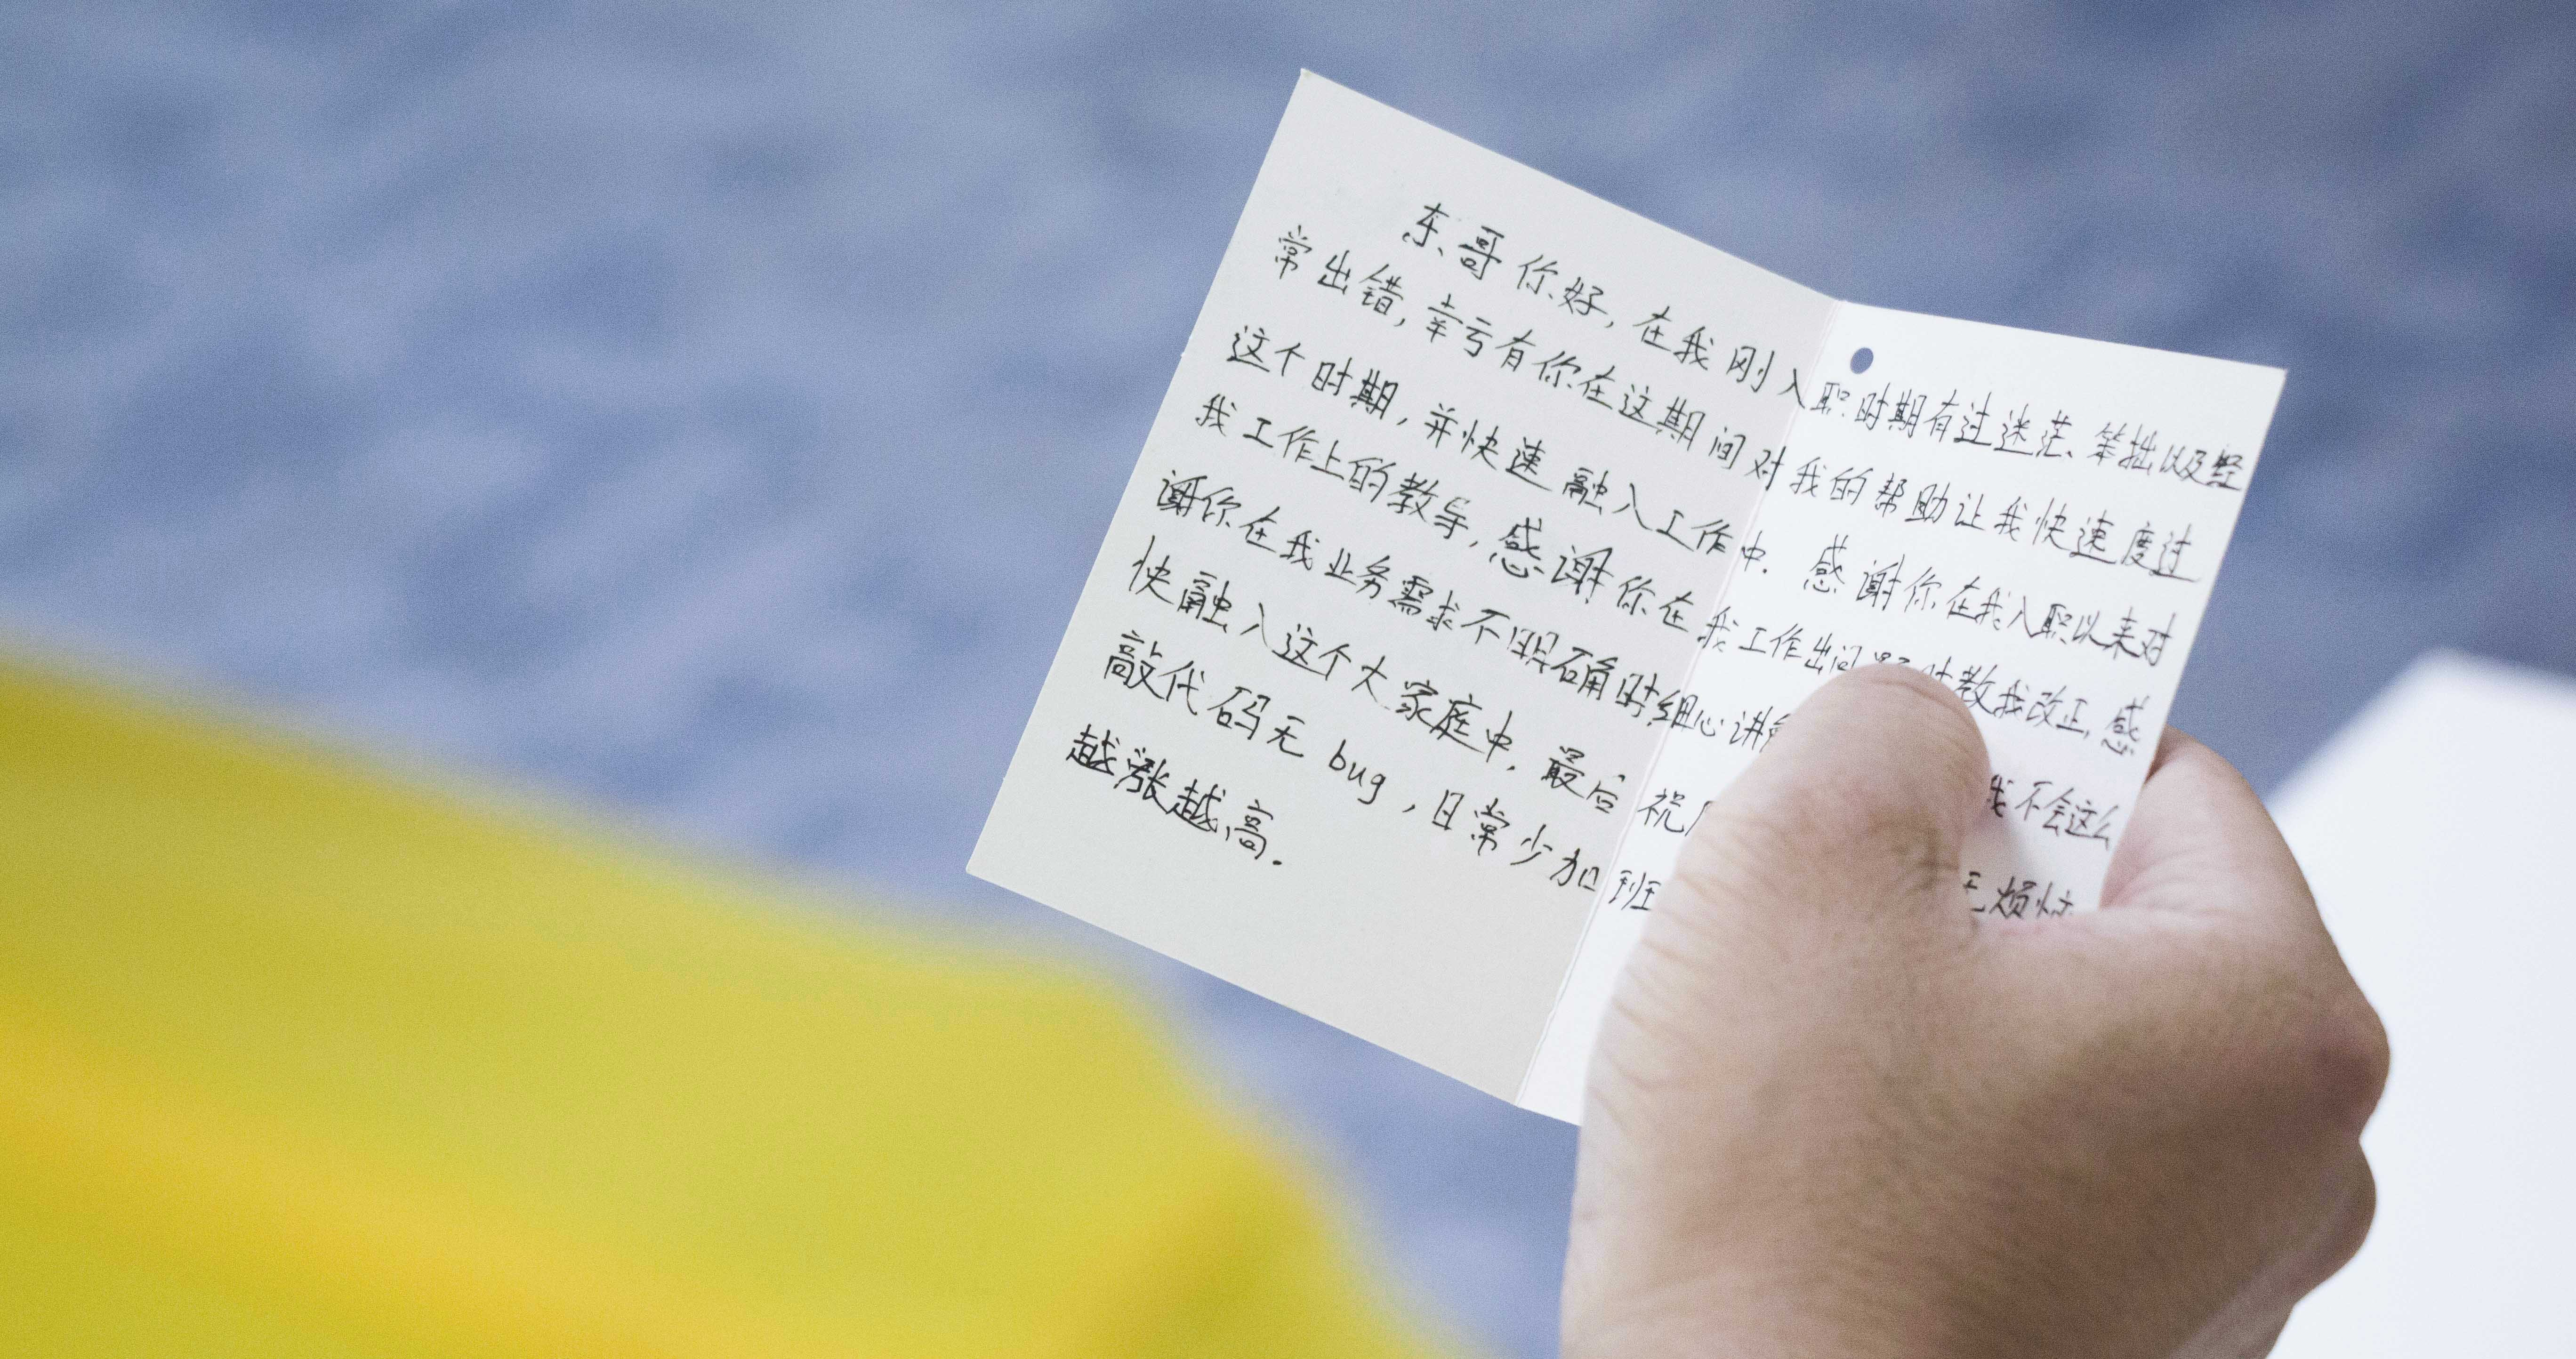 东哥你好,在我刚入职时期有过迷茫、笨拙以及经
常出错,幸亏有你在这期间对我的帮助让我快速度过
这个时期,并快速融入工作中.感谢你在我入职以来对
我工作上的教导,感谢你在我工作出问题时教我改正,感
谢你在我业务需求不明确时细心讲 我不会这么
快融入这个大家庭中.最后祝 无烦恼
敲代码无bug,日常少加班
越涨越高.